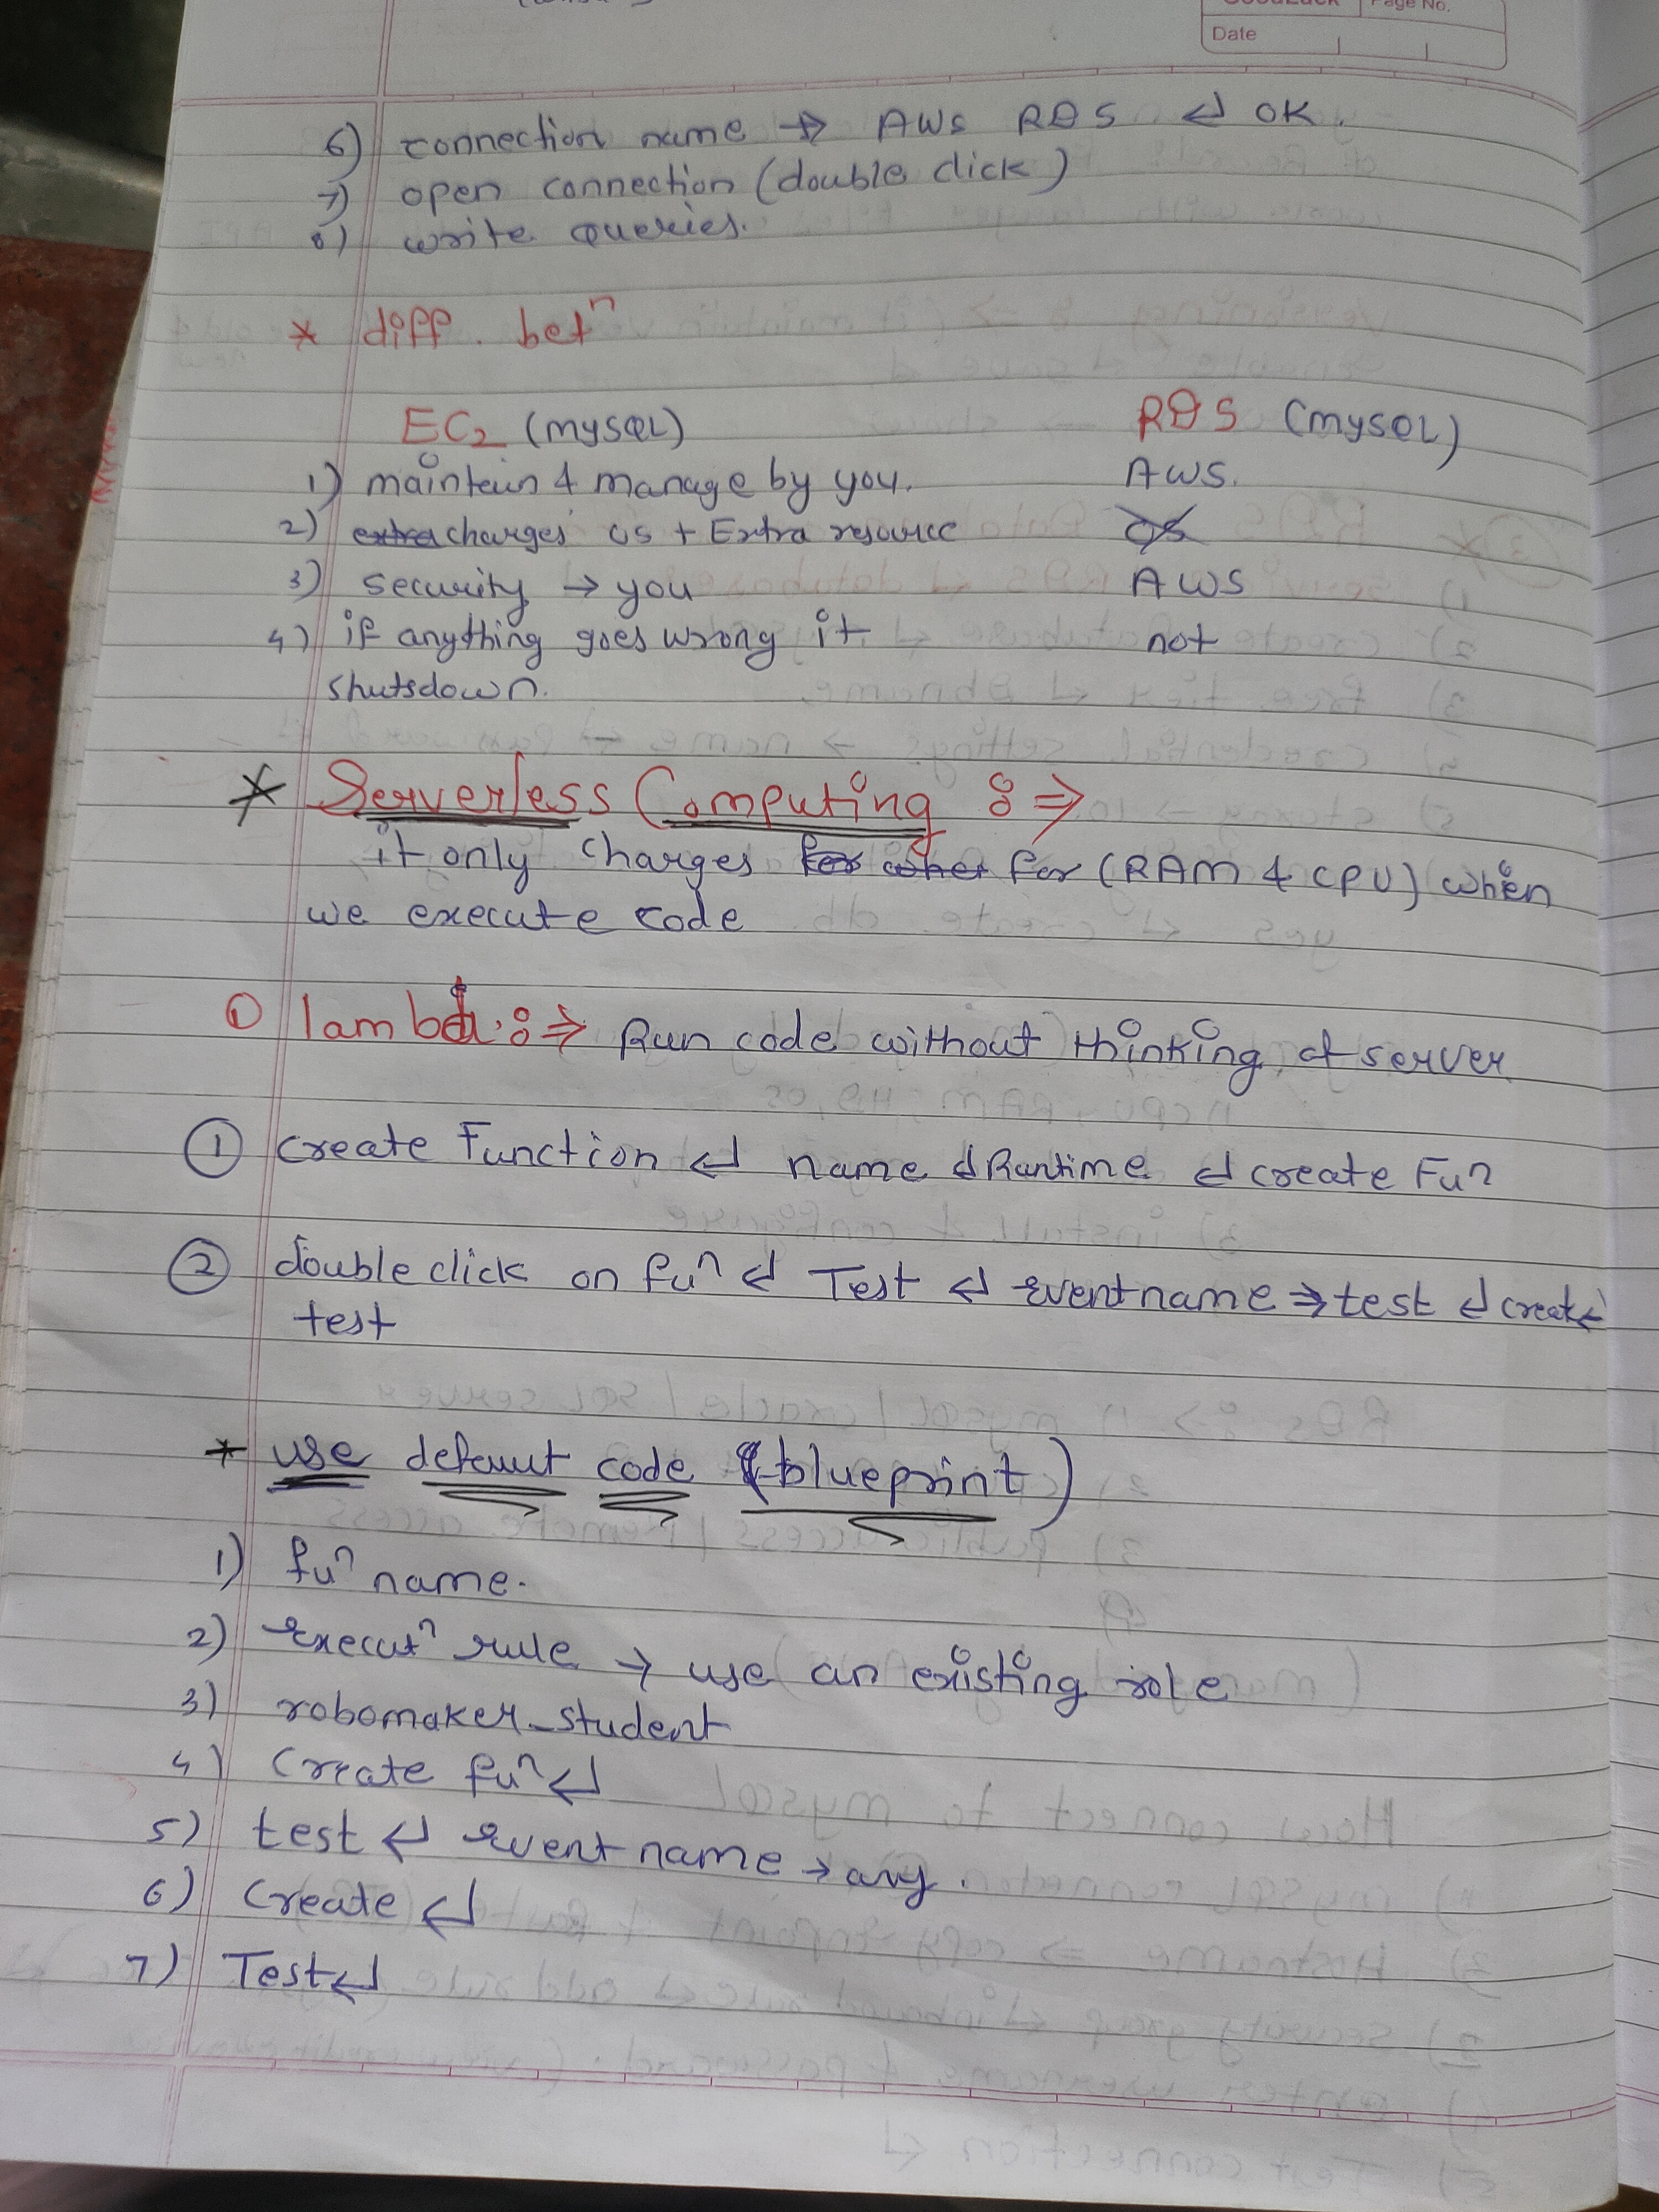 Page No.
Date
6) connection name → AWS RDS ↵ OK.
7) open connection (double click)
8) write queries.
* diff. betⁿ
EC2 (MYSQL) RDS (MYSQL)
1) maintain & manage by you. AWS.
2) extra charges OS + Extra resource OS
3) security → you AWS
4) if anything goes wrong it not
shutsdown.
* Serverless Computing :⇒
it only charges for when for (RAM & CPU) when
we execute code
① lambda :⇒ Run code without thinking of server
① create Function ↵ name ↵ Runtime ↵ create Fuⁿ
② double click on fuⁿ ↵ Test ↵ event name ⇒ test ↵ create ↵
test
* use default code (blueprint)
1) fuⁿ name.
2) Executⁿ rule → use an existing role
3) robomaker_student
4) Create fuⁿ ↵
5) test ↵ event name → any.
6) Create ↵
7) Test ↵